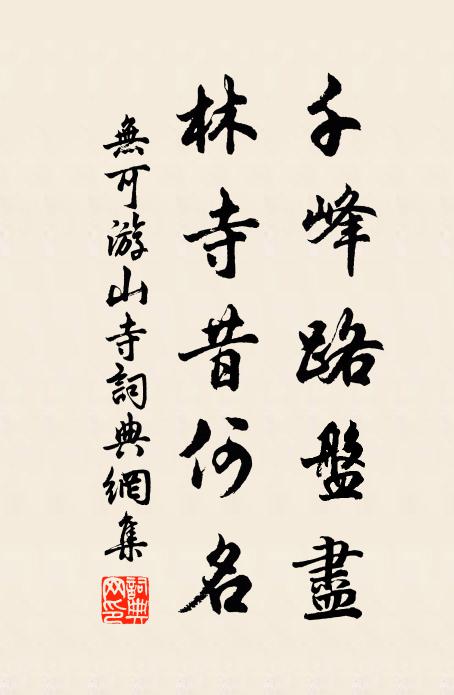 千峰路盤盡
林寺昔何名
無可游山寺詞典網集
詞典
网印